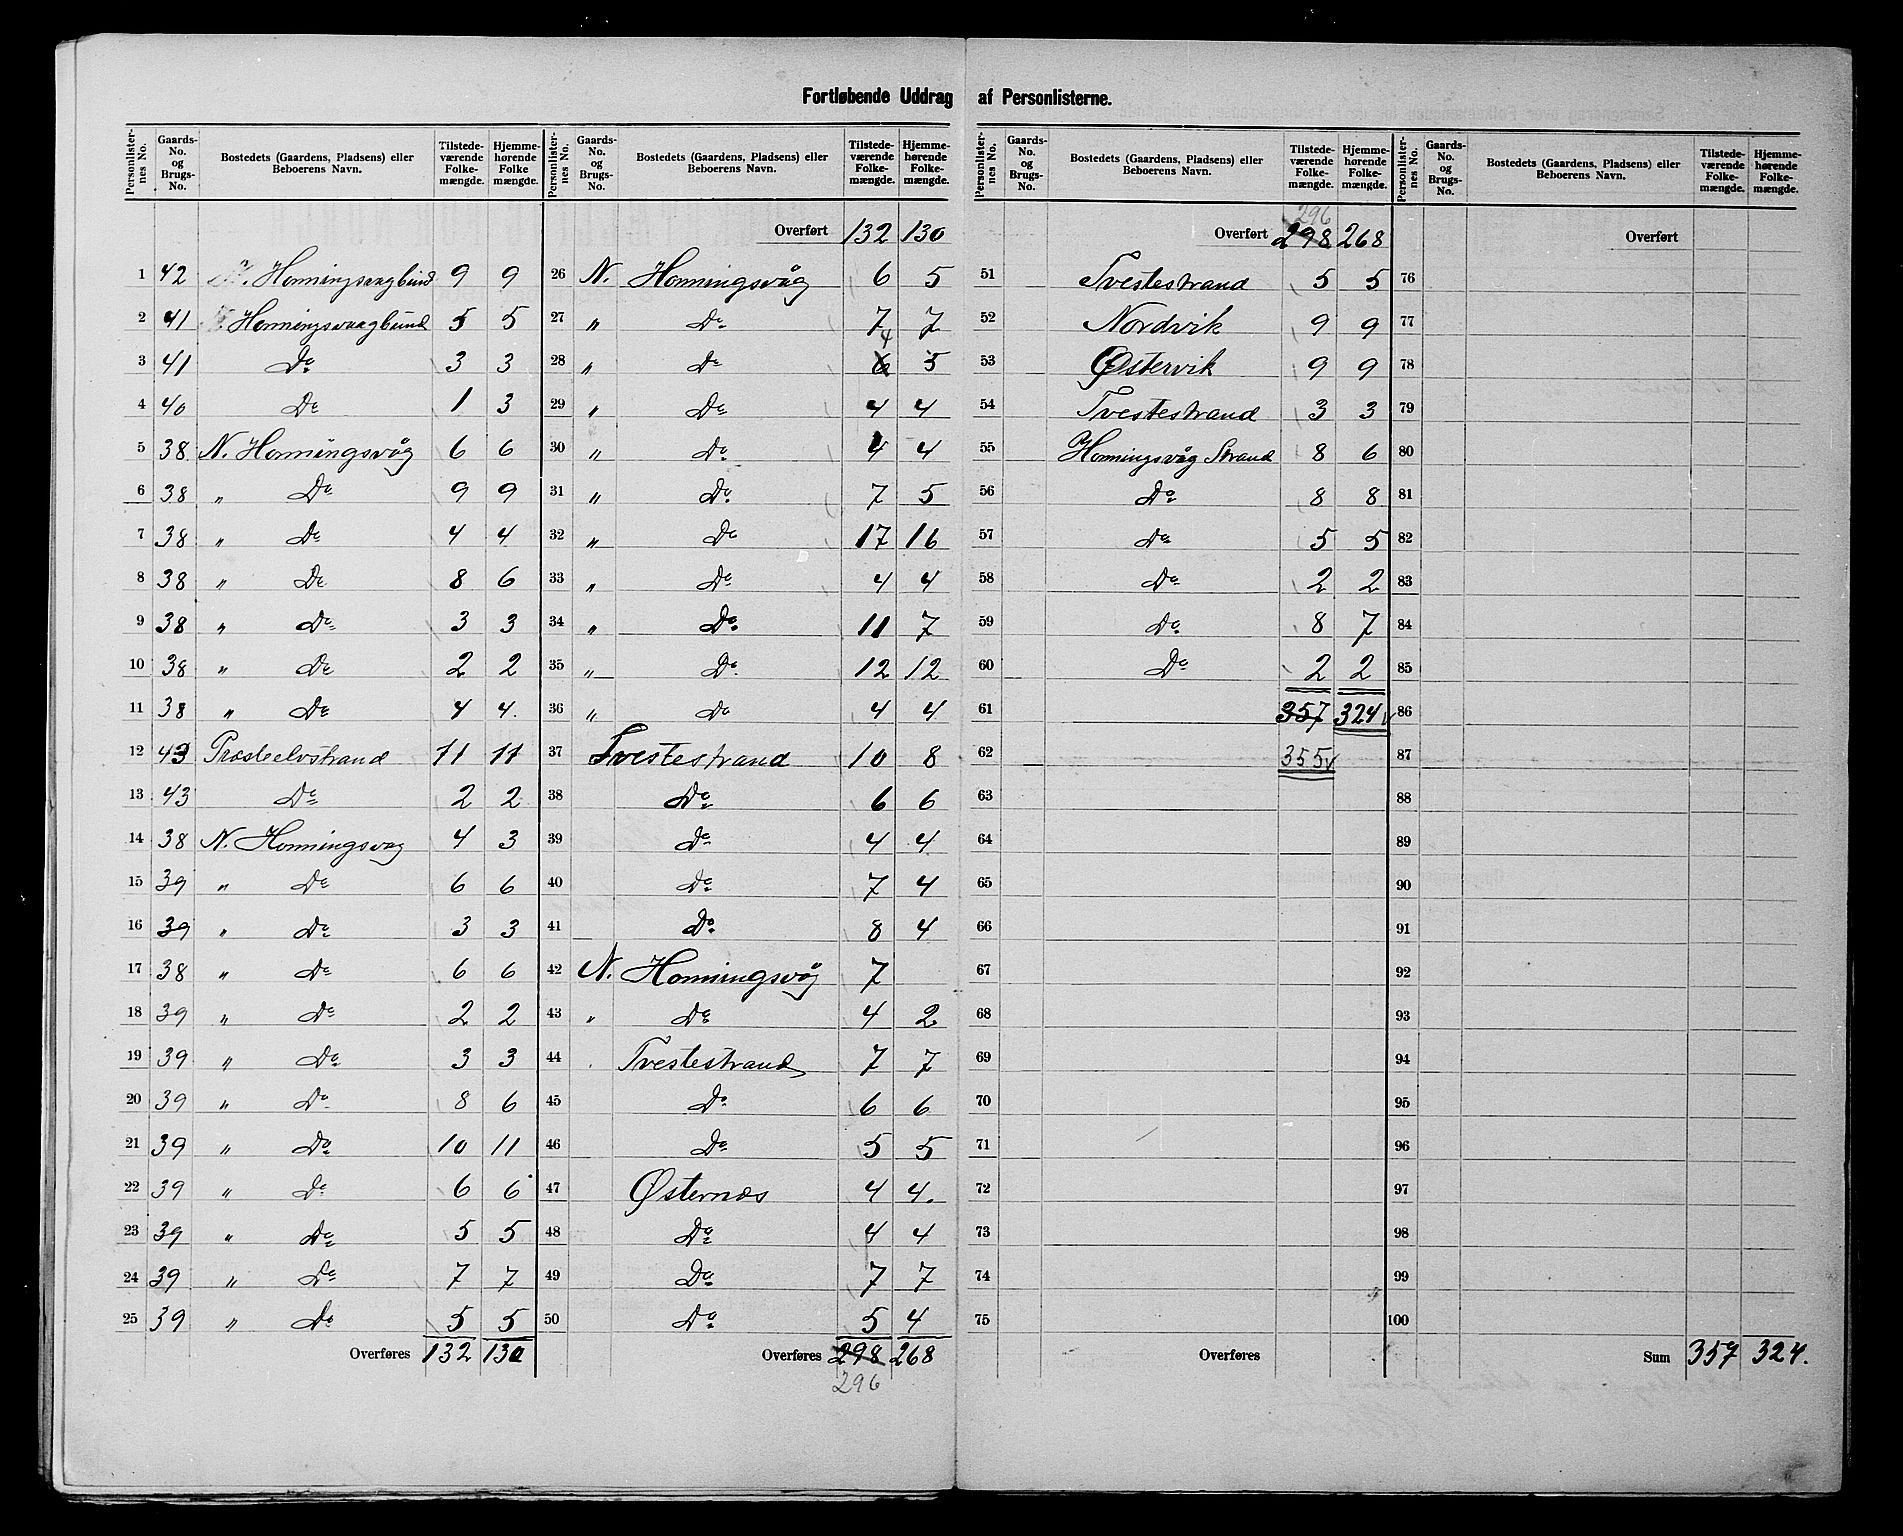 Fortløbende Uddrag af Personlisterne.
Personlister-nes No. | Gaards-No. og Brugs-No. | Bostedets (Gaardens, Pladsens) eller Beboerens Navn. | Tilstede-værende Folke-mængde. | Hjemme-hørende Folke mængde.
1 42 N. Honningsvagbund 9 9
2 41 N. Honningsvaagbund 5 5
3 41 Do 3 3
4 40 Do 1 3
5 38 N. Honningsvåg 6 6
6 38 " Do 9 9
7 38 " Do 4 4
8 38 " Do 8 6
9 38 " Do 3 3
10 38 " Do 2 2
11 38 " Do 4 4.
12 43 Præsteelvstrand 11 11
13 43 Do 2 2
14 38 N. Honningsvag 4 3
15 39 " Do 6 6
16 39 " Do 3 3
17 38 " Do 6 6
18 39 " Do 2 2
19 39 " Do 3 3
20 39 " Do 8 6
21 39 " Do 10 11
22 39 " Do 6 6
23 39 " Do 5 5
24 39 " Do 7 7
25 39 " Do 5 5
Overføres 132 130
Personlister-nes No. | Gaards-No. og Brugs-No. | Bostedets (Gaardens, Pladsens) eller Beboerens Navn. | Tilstede-værende Folke-mængde. | Hjemme-hørende Folke-mængde.
Overført 132 130
26 N. Honningsvåg 6 5
27 " Do 7 7
28 " Do 6 4 5
29 " Do 4 4
30 " Do 4 4
31 " Do 7 5
32 " Do 17 16
33 " Do 4 4
34 " Do 11 7
35 " Do 12 12
36 " Do 4 4
37 Tvestestrand 10 8
38 Do 6 6
39 Do 4 4
40 Do 7 4
41 Do 8 4
42 N. Honningsvåg 7
43 " Do 4 2
44 Tvestestrand 7 7
45 Do 6 6
46 Do 5 5
47 Østernæs 4 4.
48 Do 4 4
49 Do 7 7
50 Do 5 4
Overføres 298 268
296
Personlister-nes No. | Gaards-No. og Brugs-No. | Bostedets (Gaardens, Pladsens) eller Beboerens Navn. | Tilstede-værende Folke-mængde. | Hjemme-hørende Folke-mængde.
296
Overført 298 268
51 Tvestestrand 5 5
52 Nordvik 9 9
53 Østervik 9 9
54 Tvestestrand 3 3
55 Honningsvåg Strand 8 6
56 Do 8 8
57 Do 5 5
58 Do 2 2
59 Do 8 7
60 Do 2 2
61 357 324
62 355
63
64
65
66
67
68
69
70
71
72
73
74
75
Overføres
Personlister-nes No. | Gaards-No. og Brugs-No. | Bostedets (Gaardens, Pladsens) eller Beboerens Navn. | Tilstede-værende Folke-mængde. | Hjemme-hørende Folke-mængde.
Overført
76
77
78
79
80
81
82
83
84
85
86
87
88
89
90
91
92
93
94
95
96
97
98
99
100
Sum 357 324.